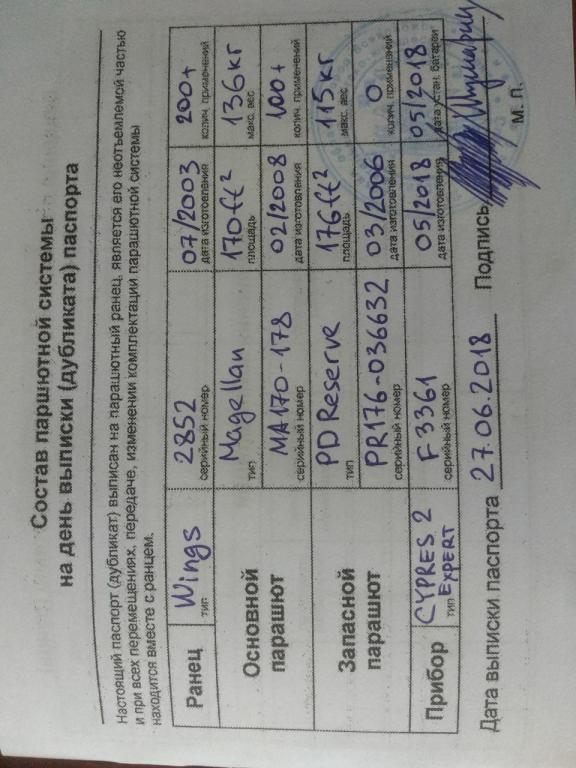 Состав паршютной системы
на день выписки (дубликата) паспорта
Настоящий паспорт (дубликат) выписан на парашютный ранец, является его неотъемлемой частью
и при всех перемещениях, передаче, изменении комплектации парашютной системы
находится вместе с ранцем.
Ранец Wings 2852 07/2003 200+
тип серийный номер дата изготовления колич. применений
Основной парашют Magellan 170ft² 136кг
тип площадь макс. вес
MA170-178 02/2008 100+
серийный номер дата изготовления колич. применений
Запасной парашют PD Reserve 176ft² 115кг
тип площадь макс. вес
PR176-036632 03/2006 0
серийный номер дата изготовления колич. применений
Прибор CYPRES 2 EXPERT F3361 05/2018 05/2018
тип серийный номер дата изготовления дата устан. батареи
Дата выписки паспорта 27.06.2018 Подпись
М. П.